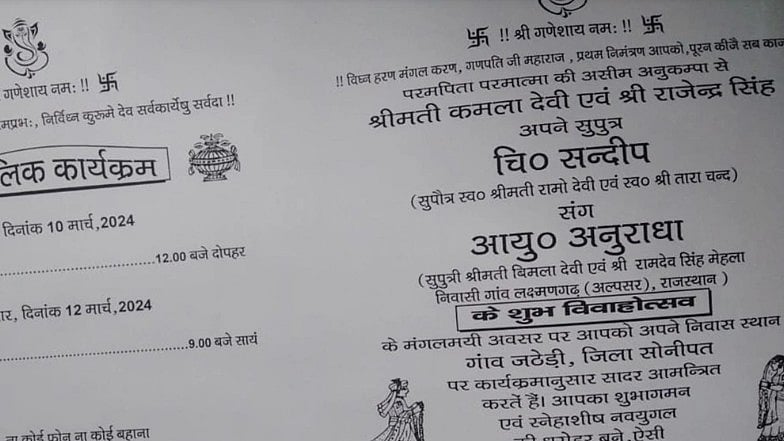 गणेशाय नमः !! 卐
मप्रभः, निर्विघ्न कुरूमे देव सर्वकार्येषु सर्वदा !!
लिक कार्यक्रम
दिनांक 10 मार्च,2024
12.00 बजे दोपहर
ार, दिनांक 12 मार्च,2024
9.00 बजे सायं
ना कोई फोन ना कोई बहाना
卐 !! श्री गणेशाय नमः !! 卐
!! विघ्न हरण मंगल करण, गणपति जी महाराज , प्रथम निमंत्रण आपको,पूरन कीजै सब काज
परमपिता परमात्मा की असीम अनुकम्पा से
श्रीमती कमला देवी एवं श्री राजेन्द्र सिंह
अपने सुपुत्र
चि० सन्दीप
(सुपौत्र स्व० श्रीमती रामो देवी एवं स्व० श्री तारा चन्द)
संग
आयु० अनुराधा
(सुपुत्री श्रीमती बिमला देवी एवं श्री रामदेव सिंह मेहला
निवासी गांव लक्ष्मणगढ़ (अल्पसर), राजस्थान )
के शुभ विवाहोत्सव
के मंगलमयी अवसर पर आपको अपने निवास स्थान
गांव जठेड़ी, जिला सोनीपत
पर कार्यक्रमानुसार सादर आमन्त्रित
करतें हैं। आपका शुभागमन
एवं स्नेहाशीष नवयुगल
की धरोहर बने, ऐसी